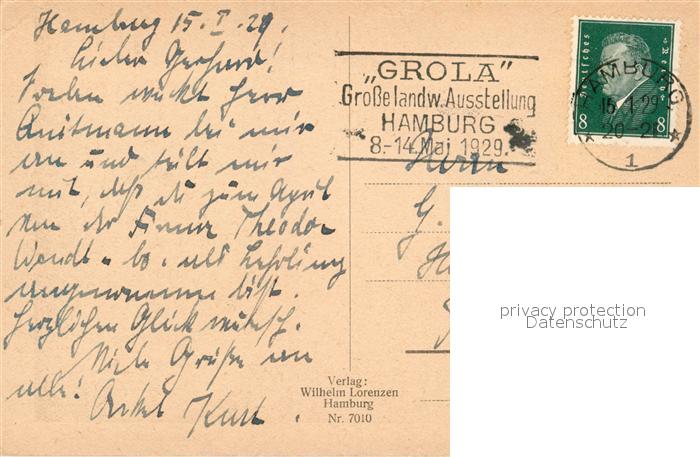 Hamburg 15. I. 29.
Lieber Gerhard!
Soeben ruft Herr
bei mir
an und teilt mir
mit, daß du zum April
von der Firma Theodor
Wendt u. Co. als Lehrling
angenommen bist.
Herzlichen Glückwunsch.
Viele Grüße an
alle!
Onkel Kurt.
„GROLA"
Große landw. Ausstellung
HAMBURG
8-14. Mai 1929.
Deutsches Reich
8 8
HAMBURG
15.1.29
20-21
* 1 *
Herrn
G.
Verlag:
Wilhelm Lorenzen
Hamburg
Nr. 7010
privacy protection
Datenschutz